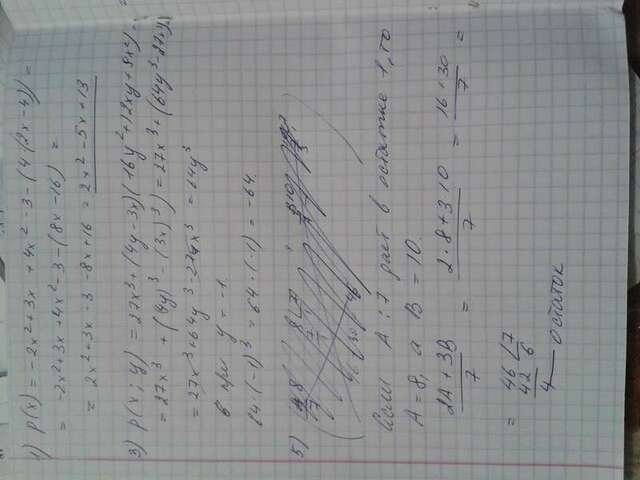 1) p(x) = -2x²+3x + 4x²-3-(4(2x-4)) =
= -2x²+3x+4x²-3-(8x-16) =
= 2x²+3x-3-8x+16 = 2x²-5x+13
3) p(x;y) = 27x³+(4y-3x)(16y²+12xy+9x²)
= 27x³+((4y)³-(3x)³) = 27x³+(64y³-27x³)
= 27x³+64y³-27x³ = 64y³
при y = -1.
64·(-1)³ = 64·(-1) = -64.
5)
Если A:7 дает в остатке 1, то
A = 8, а B = 10.
2A+3B/7 = 2·8+3·10/7 = 16+30/7 =
= 46 7
42 6
4 остаток